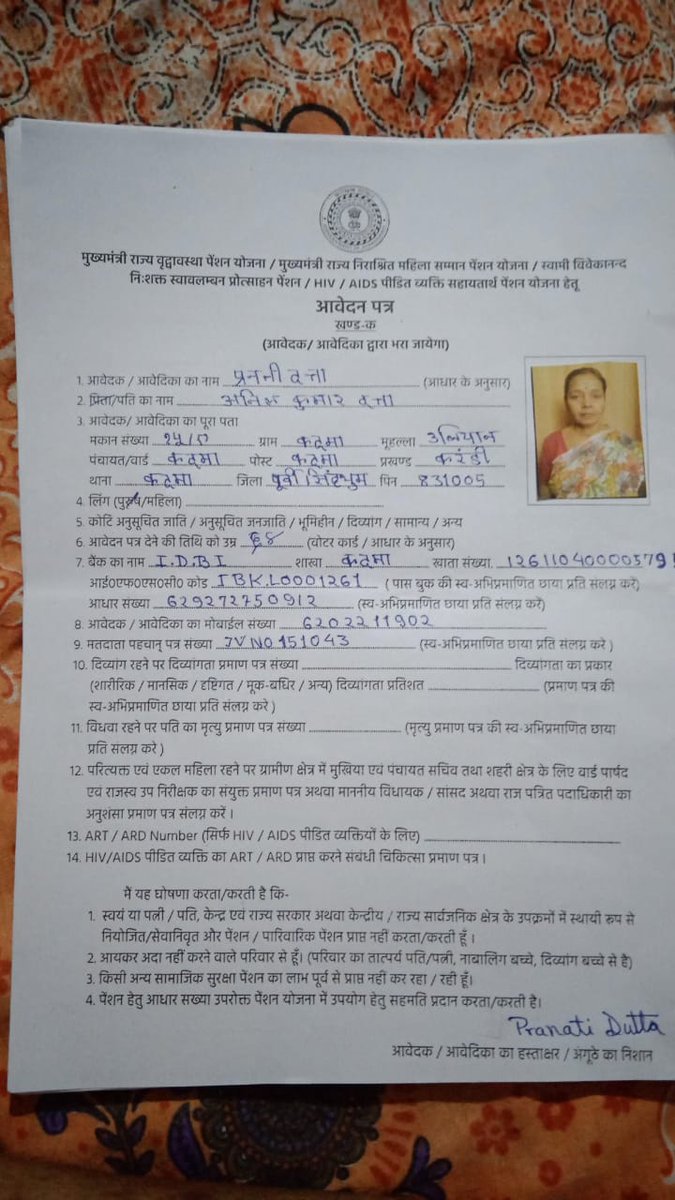 मुख्यमंत्री राज्य वृद्वावस्था पेंशन योजना / मुख्यमंत्री राज्य निराश्रित महिला सम्मान पेंशन योजना / स्वामी विवेकानन्द
निःशक्त स्वावलम्बन प्रोत्साहन पेंशन / HIV / AIDS पीडित व्यक्ति सहायतार्थ पेंशन योजना हेतू
आवेदन पत्र
खण्ड-क
(आवेदक/ आवेदिका द्वारा भरा जायेगा)
1. आवेदक / आवेदिका का नाम प्रनती दत्ता (आधार के अनुसार)
2. पिता/पति का नाम कुमार दत्ता
3. आवेदक/ आवेदिका का पूरा पता
मकान संख्या ग्राम कदमा मूहल्ला उलियान
पंचायत/वार्ड कदमा पोस्ट कदमा प्रखण्ड करंडी
थाना कदमा जिला पूर्वी सिंहभुम पिन 831005
4. लिंग (पुरूष/महिला)
5. कोटि अनुसूचित जाति / अनुसूचित जनजाति / भूमिहीन / दिव्यांग / सामान्य / अन्य
6. आवेदन पत्र देने की तिथि को उम्र ६४ (वोटर कार्ड / आधार के अनुसार)
7. बैंक का नाम I.D.B.I शाखा कदमा खाता संख्या. 12611040000579
आई०एफ०एस०सी० कोड IBKL0001261 ( पास बुक की स्व-अभिप्रमाणित छाया प्रति संलग्न करें)
आधार संख्या 629272750912 (स्व-अभिप्रमाणित छाया प्रति संलग्न करें)
8. आवेदक / आवेदिका का मोबाईल संख्या 6202211902
9. मतदाता पहचान् पत्र संख्या JVNO151043 (स्व-अभिप्रमाणित छाया प्रति संलग्न करे )
10. दिव्यांग रहने पर दिव्यांगता प्रमाण पत्र संख्या दिव्यांगता का प्रकार
(शारीरिक / मानसिक / दृष्टिगत / मूक-बधिर / अन्य) दिव्यांगता प्रतिशत (प्रमाण पत्र की
स्व-अभिप्रमाणित छाया प्रति संलग्न करे )
11. विधवा रहने पर पति का मृत्यु प्रमाण पत्र संख्या (मृत्यु प्रमाण पत्र की स्व-अभिप्रमाणित छाया
प्रति संलग्न करे )
12. परित्यक्त एवं एकल महिला रहने पर ग्रामीण क्षेत्र में मुखिया एवं पंचायत सचिव तथा शहरी क्षेत्र के लिए वार्ड पार्षद
एवं राजस्व उप निरीक्षक का संयुक्त प्रमाण पत्र अथवा माननीय विधायक / सांसद अथवा राज पत्रित पदाधिकारी का
अनुशंसा प्रमाण पत्र संलग्न करें ।
13. ART / ARD Number (सिर्फ HIV / AIDS पीडित व्यक्तियों के लिए)
14. HIV/AIDS पीडित व्यक्ति का ART / ARD प्राप्त करने संबंधी चिकित्सा प्रमाण पत्र ।
मैं यह घोषणा करता/करती है कि-
1. स्वयं या पत्नी / पति, केन्द्र एवं राज्य सरकार अथवा केन्द्रीय / राज्य सार्वजनिक क्षेत्र के उपक्रमों में स्थायी रूप से
नियोजित/सेवानिवृत और पेंशन / पारिवारिक पेंशन प्राप्त नहीं करता/करती हूँ ।
2. आयकर अदा नहीं करने वाले परिवार से हूँ। (परिवार का तात्पर्य पति/पत्नी, नाबालिग बच्चे, दिव्यांग बच्चे से है)
3. किसी अन्य सामाजिक सुरक्षा पेंशन का लाभ पूर्व से प्राप्त नहीं कर रहा / रही हूँ।
4. पेंशन हेतु आधार सख्या उपरोक्त पेंशन योजना में उपयोग हेतु सहमति प्रदान करता/करती है।
Pranati Dutta
आवेदक / आवेदिका का हस्ताक्षर / अंगूठे का निशान